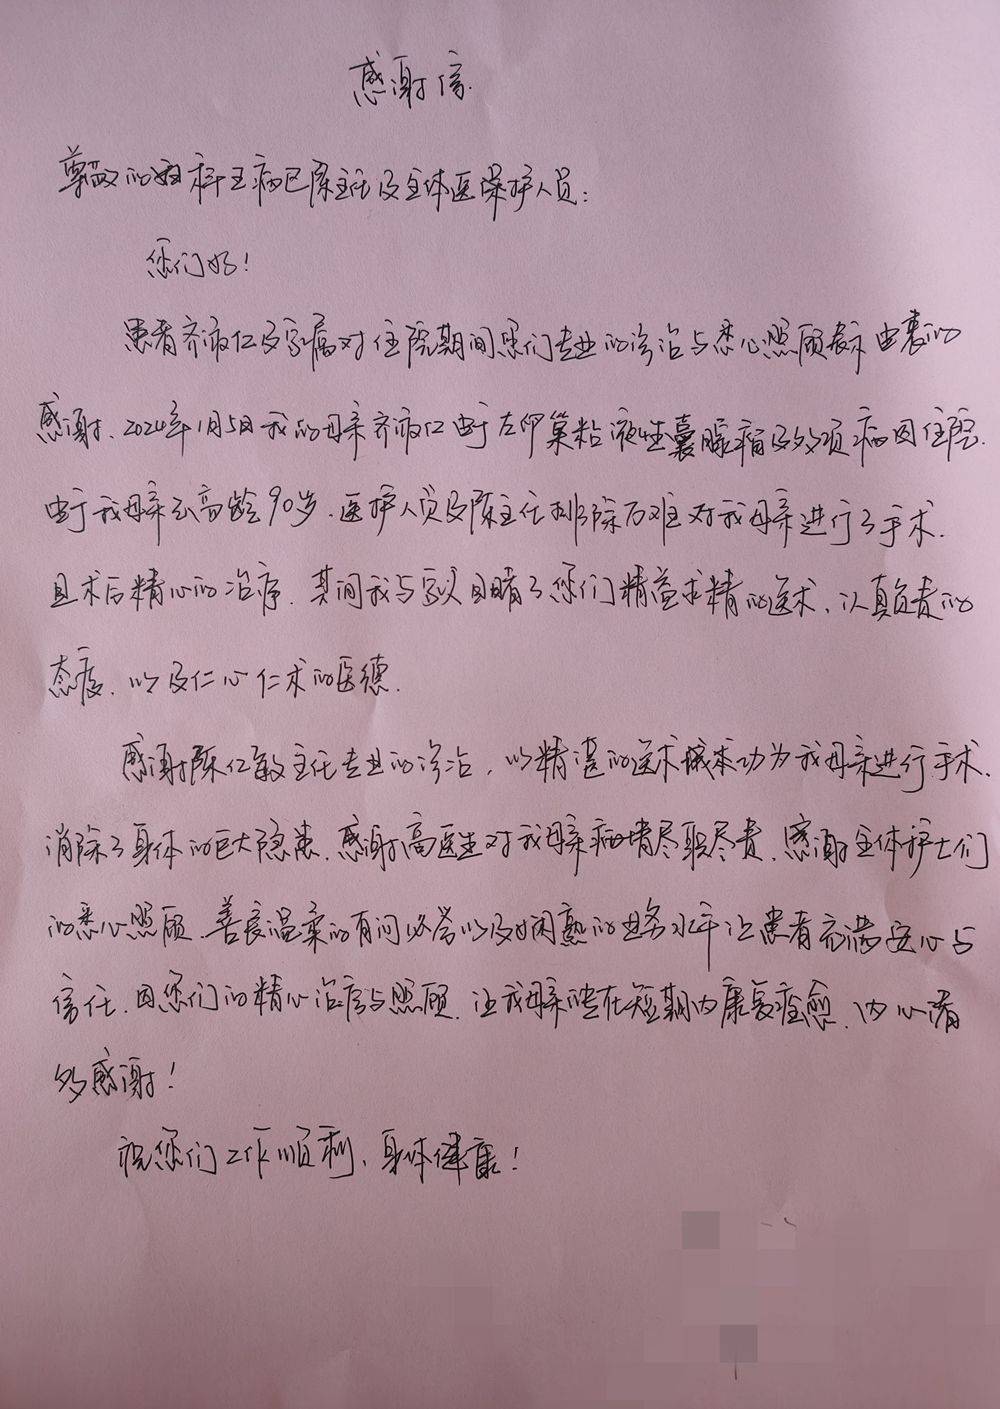 感谢信.
尊敬的妇科五病区陈主任及全体医保护人员：
您们好！
患者齐淑仁及家属对住院期间您们专业的诊治与悉心照顾表示由衷的
感谢、2024年1月5日我的母亲齐淑仁由于左卵巢粘液性囊腺瘤及多项病因住院.
由于我母亲高龄90岁.医护人员及陈主任排除万难对我母亲进行了手术.
且术后精心的治疗.其间我与家人目睹了您们精益求精的医术、认真负责的
态度、以及仁心仁术的医德.
感谢陈仁敏主任专业的诊治，以精湛的医术成功为我母亲进行手术.
消除了身体的巨大隐患.感谢高医生对我母亲病情尽职尽责.感谢全体护士们
的悉心照顾.善良温柔的有问必答以及娴熟的业务水平让患者充满安心与
信任.因您们的精心治疗与照顾.让我母亲能在短期内康复痊愈.内心满
多感谢！
祝您们工作顺利、身体健康！